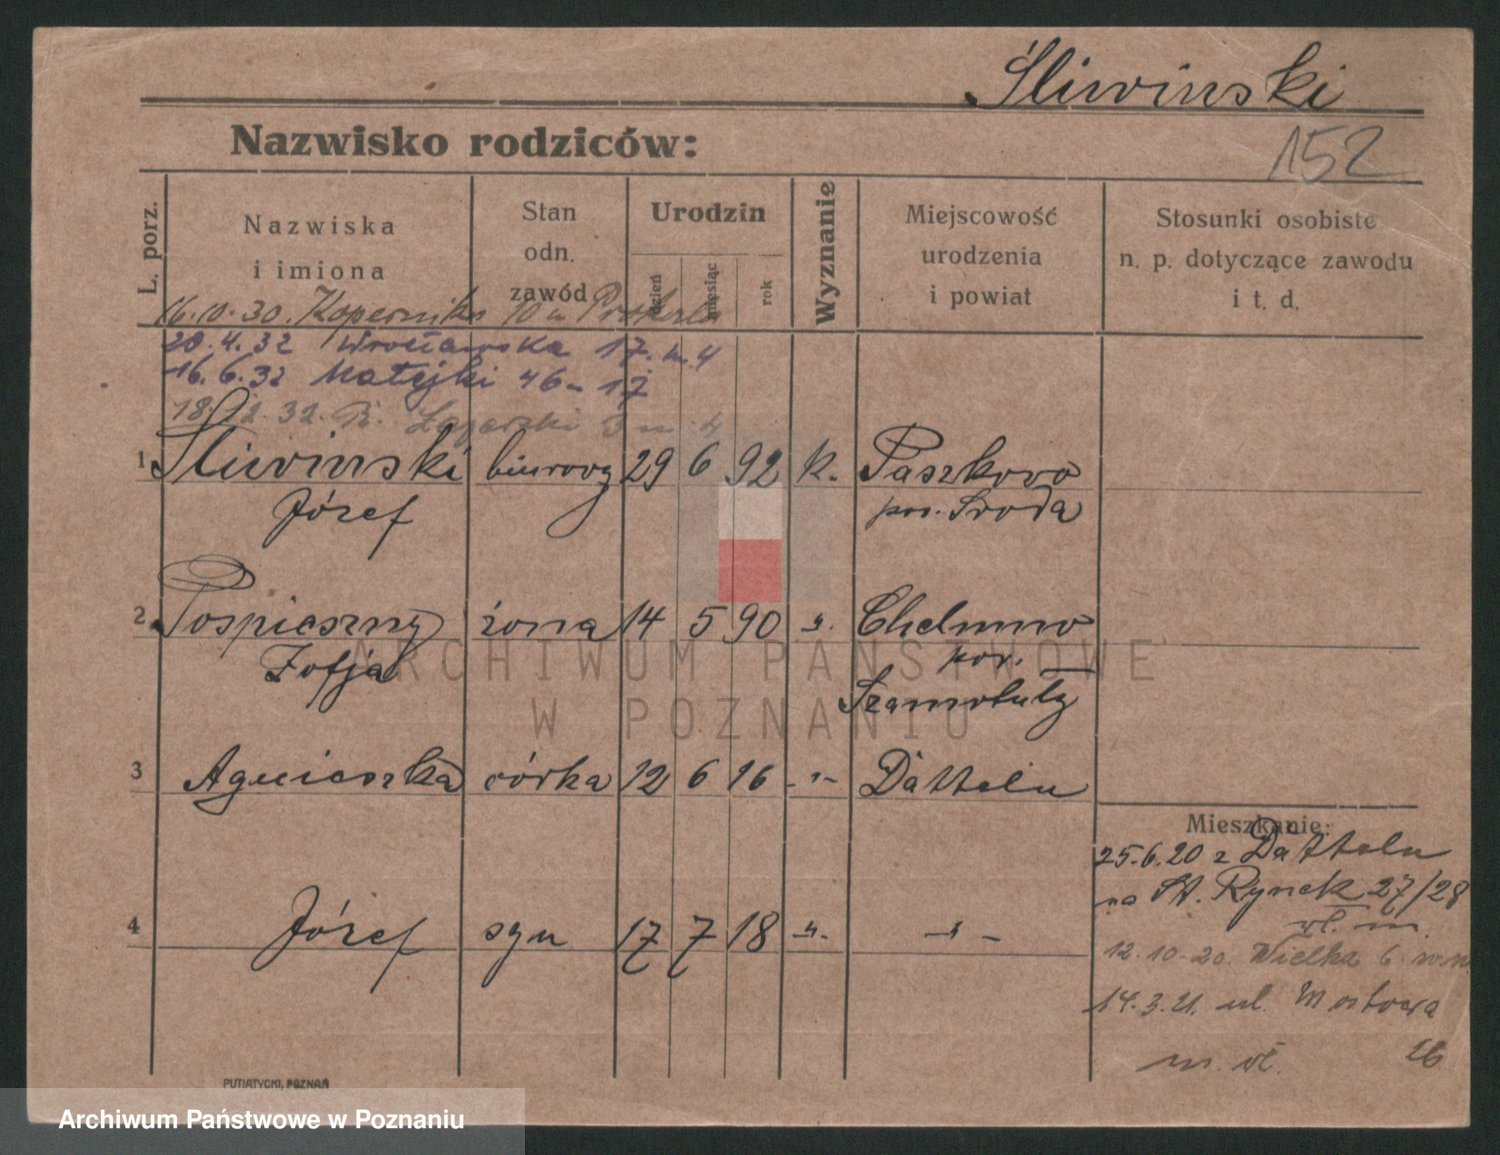 Śliwinski
Nazwisko rodziców:
152
L. porz.
Nazwiska
i imiona
Stan
odn.
zawód
Urodzin
dzień
miesiąc
rok
Wyznanie
Miejscowość
urodzenia
i powiat
Stosunki osobiste
n. p. dotyczące zawodu
i t. d.
16.10.30. Kopernika 10 u
20.4.32 Wrocławska 17. m. 4
16.6.32 Matejki 46 m 17
18.12.32. 3 m 4
1 Śliwinski biurowy 29 6 92 k. Paszkowo
Józef pow. Środa
2 Pospieszny żona 14 5 90 ". Chełmno
Zofja pow.
Szamotuły
3 Agnieszka córka 12 6 16 - " - Datteln
Mieszkanie:
25.6.20 z Datteln
na St. Rynek 27/28
wł. m.
4 Józef syn 17 7 18 - " - - " -
12.10.20. Wielka 6.
14.3.21. ul. Mostowa
26
m. wł.
PUTIATYCKI, POZNAŃ
ARCHIWUM PAŃSTWOWE
W POZNANIU
Archiwum Państwowe w Poznaniu